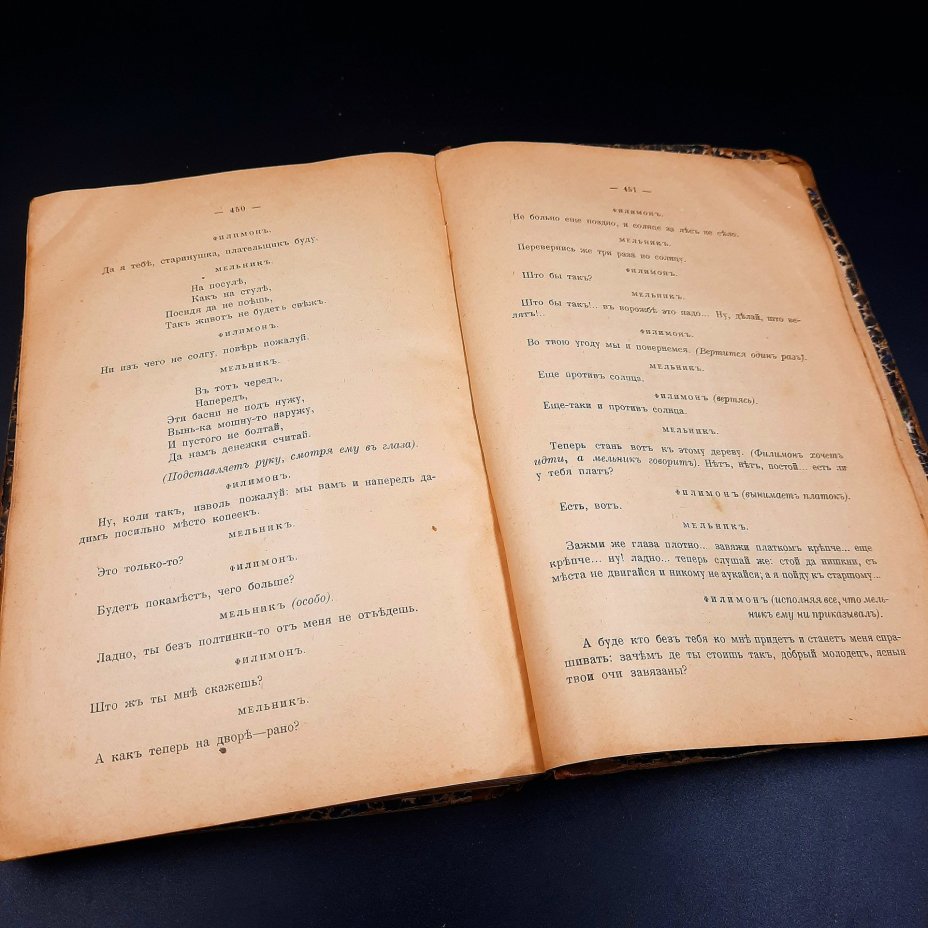 — 450 —
ФИЛИМОНЪ.
Да я тебѣ, старинушка, плательщикъ буду.
МЕЛЬНИКЪ.
На посулѣ,
Какъ на стулѣ,
Посидя да не поѣшь,
Такъ животъ не будетъ свѣжъ.
ФИЛИМОНЪ.
Ни изъ чего не солгу, повѣрь пожалуй.
МЕЛЬНИКЪ.
Въ тотъ чередъ,
Напередъ,
Эти басни не подъ нужу,
Вынь-ка мошну-то наружу,
И пустого не болтай,
Да намъ денежки считай.
(Подставляетъ руку, смотря ему въ глаза).
ФИЛИМОНЪ.
Ну, коли такъ, изволь пожалуй: мы вамъ и напередъ да-
димъ посильно мѣсто копеекъ.
МЕЛЬНИКЪ.
Это только-то?
ФИЛИМОНЪ.
Будетъ покамѣстъ, чего больше?
МЕЛЬНИКЪ (особо).
Ладно, ты безъ полтинки-то отъ меня не отъѣдешь.
ФИЛИМОНЪ.
Што жъ ты мнѣ скажешь?
МЕЛЬНИКЪ.
А какъ теперь на дворѣ—рано?
— 451 —
ФИЛИМОНЪ.
Не больно еще поздно, и солнце за лѣсъ не сѣло.
МЕЛЬНИКЪ.
Перевернись же три раза по солнцу.
ФИЛИМОНЪ.
Што бы такъ?
МЕЛЬНИКЪ.
Што бы такъ!.. въ ворожбѣ это надо... Ну, дѣлай, што ве-
лятъ!..
ФИЛИМОНЪ.
Во твою угоду мы и повернемся. (Вертится одинъ разъ).
МЕЛЬНИКЪ.
Еще противъ солнца.
ФИЛИМОНЪ (вертясь).
Еще-таки и противъ солнца.
МЕЛЬНИКЪ.
Теперь стань вотъ къ этому дереву. (Филимонъ хочетъ
идти, а мельникъ говоритъ). Нѣтъ, нѣтъ, постой... есть ли
у тебя платъ?
ФИЛИМОНЪ (вынимаетъ платокъ).
Есть, вотъ.
МЕЛЬНИКЪ.
Зажми же глаза плотно... завяжи платкомъ крѣпче... еще
крѣпче... ну! ладно... теперь слушай же: стой да нишкни, съ
мѣста не двигайся и никому не аукайся; а я пойду къ старшому...
ФИЛИМОНЪ (исполняя все, что мель-
никъ ему ни приказывалъ).
А буде кто безъ тебя ко мнѣ придетъ и станетъ меня спра-
шивать: зачѣмъ де ты стоишь такъ, добрый молодецъ, ясныя
твои очи завязаны?